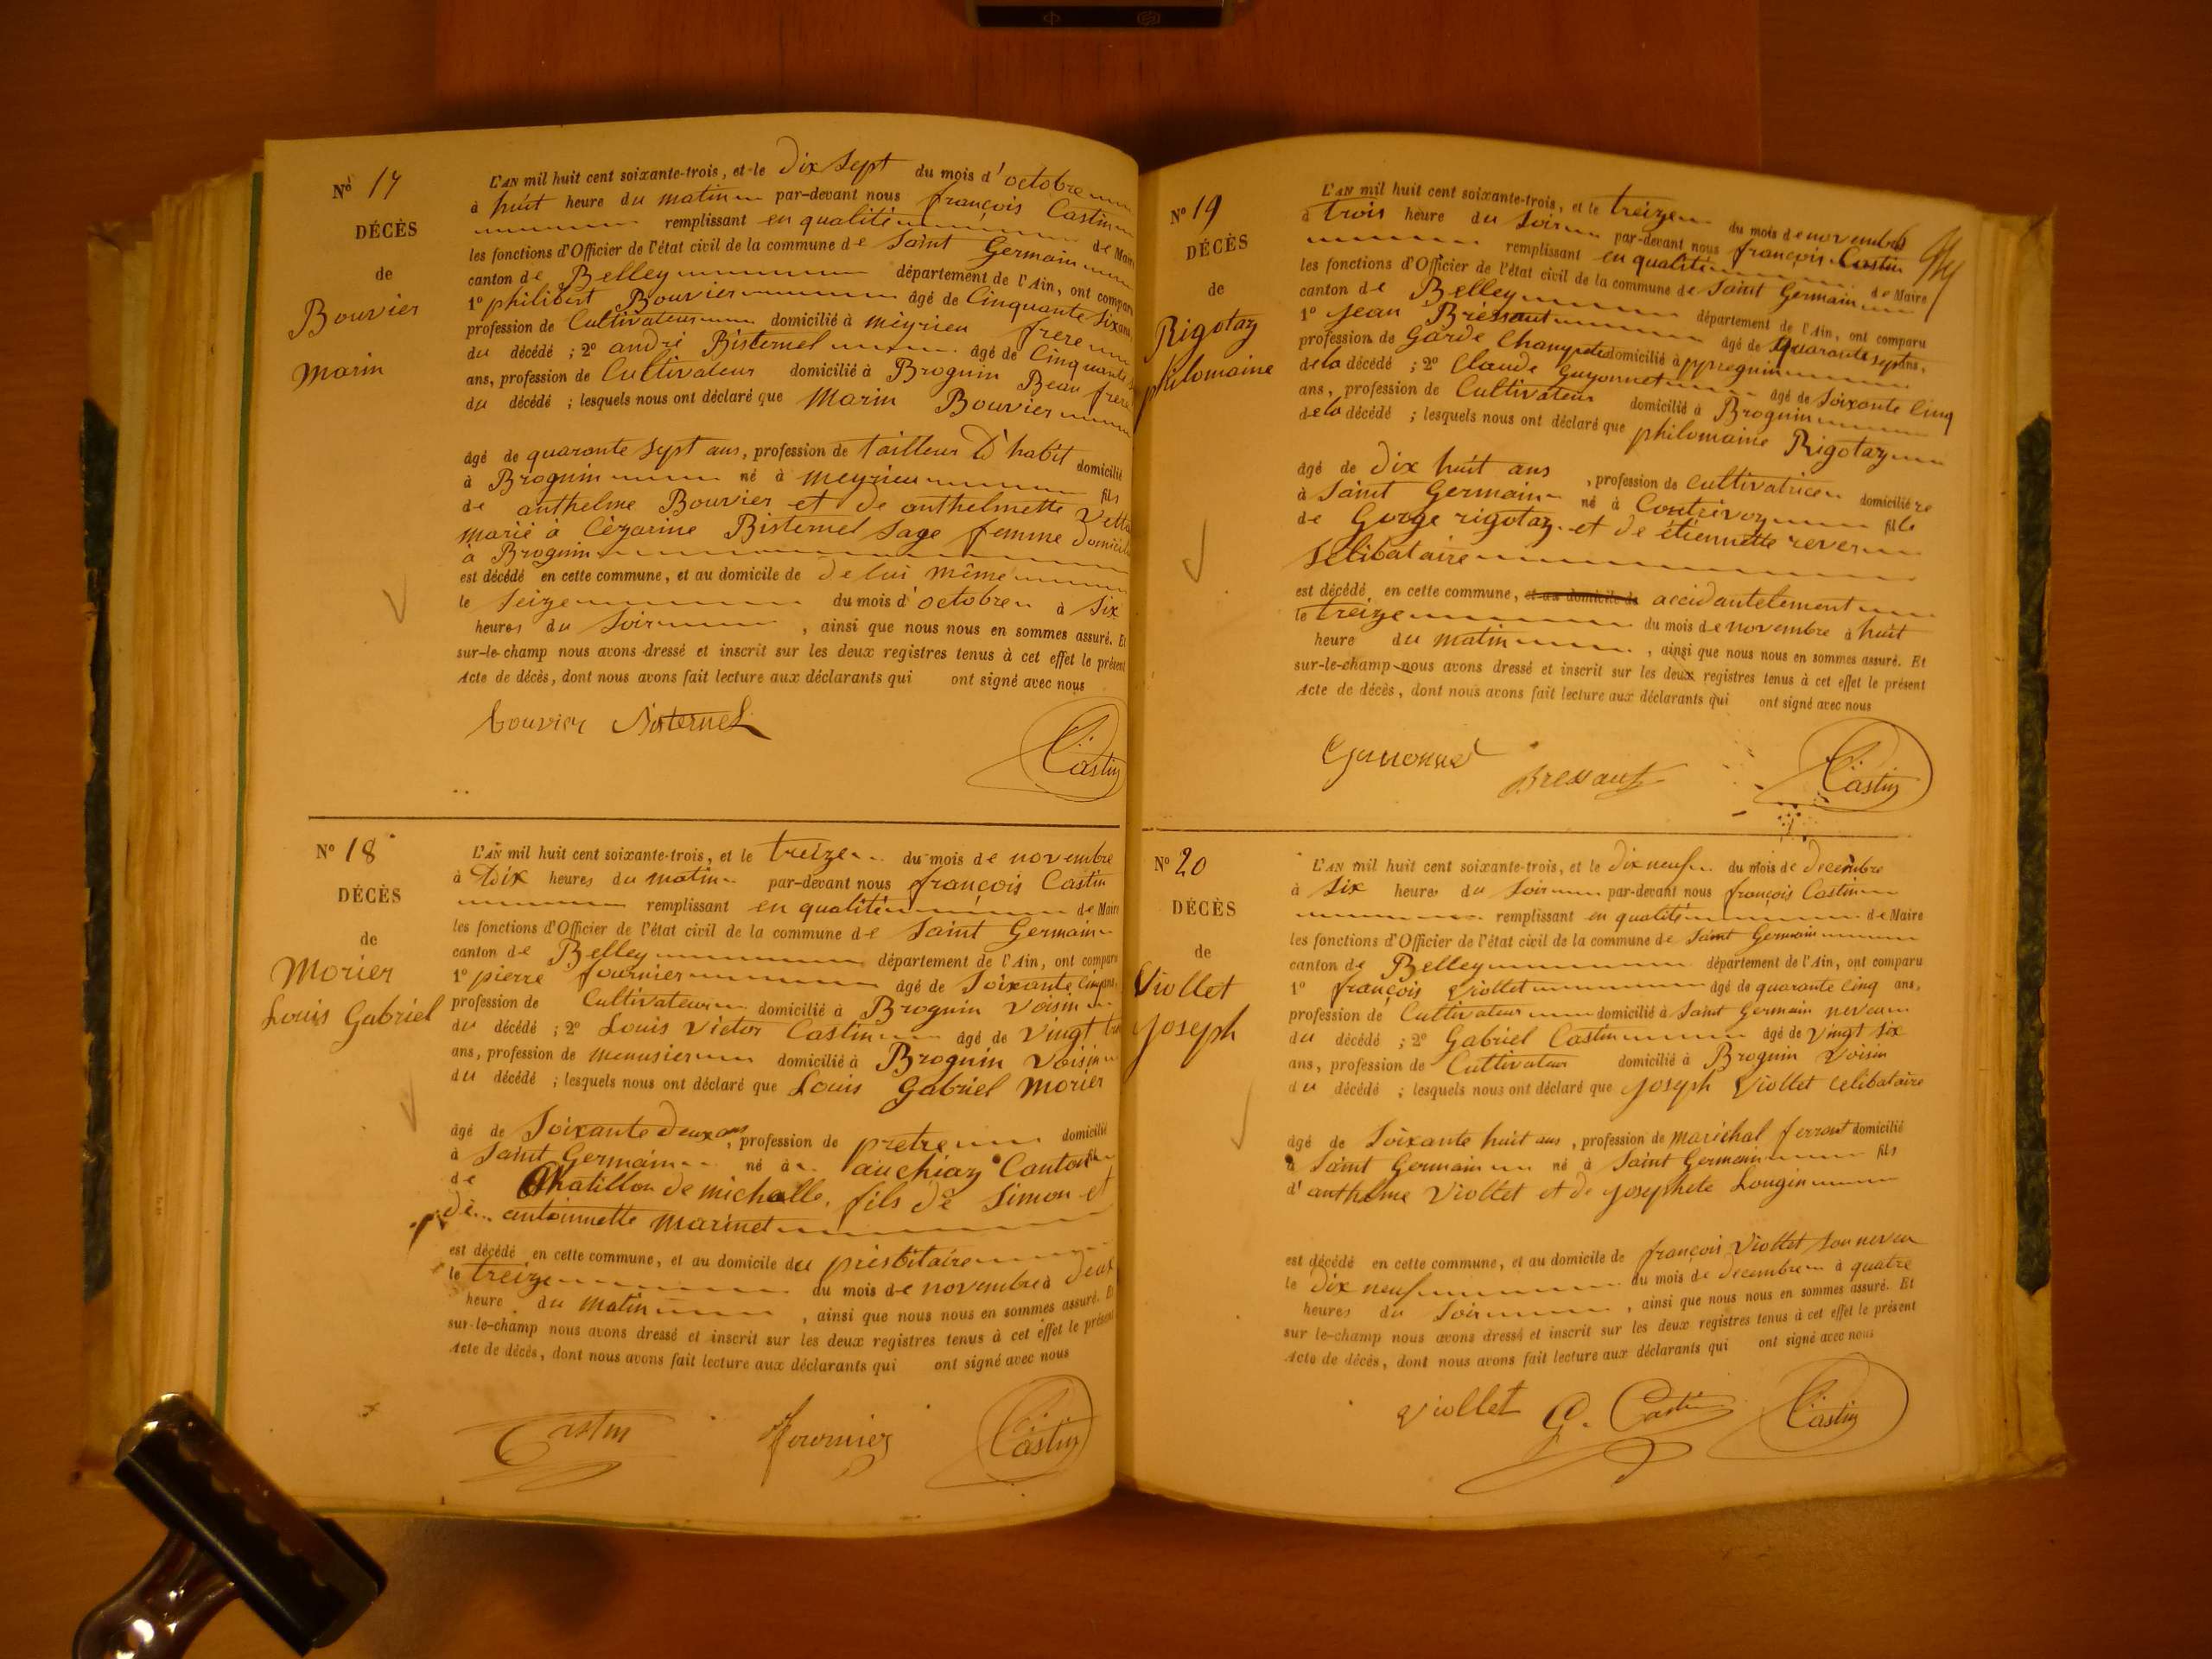 Nº 17
DÉCÈS
de
Bouvier
Marin
L'AN mil huit cent soixante-trois, et le dix sept du mois d'octobre
à huit heure du matin par-devant nous françois Castin
remplissant en qualité de Maire
les fonctions d'Officier de l'état civil de la commune de Saint Germain
canton de Belley département de l'Ain, ont comparu
1º philibert Bouvier âgé de Cinquante six ans
profession de Cultivateur domicilié à meyrieu frere
du décédé ; 2º andré Bisternel âgé de Cinquante
ans, profession de Cultivateur domicilié à Brognin Beau frere
du décédé ; lesquels nous ont déclaré que Marin Bouvier
âgé de quarante sept ans, profession de tailleur D'habit domicilié
à Brognin né à meyrieu fils
de anthelme Bouvier et de anthelmette
marié à Cézarine Bisternel sage femme
à Brognin
est décédé en cette commune, et au domicile de de lui même
le seize du mois d'octobre à six
heures du soir , ainsi que nous nous en sommes assuré. Et
sur-le-champ nous avons dressé et inscrit sur les deux registres tenus à cet effet le présent
Acte de décès, dont nous avons fait lecture aux déclarants qui ont signé avec nous
bouvier Bisternel
Castin
Nº 18
DÉCÈS
de
Morier
Louis Gabriel
L'AN mil huit cent soixante-trois, et le treize du mois de novembre
à dix heures du matin par-devant nous françois Castin
remplissant en qualité de Maire
les fonctions d'Officier de l'état civil de la commune de Saint Germain
canton de Belley département de l'Ain, ont comparu
1º pierre fournier âgé de Soixante cinq ans
profession de Cultivateur domicilié à Brognin Voisin
du décédé ; 2º Louis Victor Castin âgé de vingt
ans, profession de menusier domicilié à Brognin Voisin
du décédé ; lesquels nous ont déclaré que Louis Gabriel Morier
âgé de Soixante deux ans, profession de pretre domicilié
à Saint Germain né à auchiaz Canton
de Chatillon de michalle, fils de Simon et
de antoinnette marinet
est décédé en cette commune, et au domicile du presbitaire
le treize du mois de novembre à deux
heure du matin , ainsi que nous nous en sommes assuré. Et
sur-le-champ nous avons dressé et inscrit sur les deux registres tenus à cet effet le présent
Acte de décès, dont nous avons fait lecture aux déclarants qui ont signé avec nous
Castin fournier Castin
Nº 19
DÉCÈS
de
Rigotaz
philomaine
L'AN mil huit cent soixante-trois, et le treize du mois de novembre
à trois heure du soir par-devant nous françois Castin
remplissant en qualité de Maire
les fonctions d'Officier de l'état civil de la commune de Saint Germain
canton de Belley département de l'Ain, ont comparu
1º Jean Bressaut âgé de quarante sept ans,
profession de Garde Champetre domicilié à
de la décédé ; 2º Claude Guyonnet âgé de Soixante Cinq
ans, profession de Cultivateur domicilié à Brognin
de la décédé ; lesquels nous ont déclaré que philomaine Rigotaz
âgé de dix huit ans , profession de cultivatrice domiciliére
à Saint Germain né à Contrevoz fille
de Gorge rigotaz et de étiennette rever
selibataire
est décédé en cette commune, et au domicile de accidantelement
le treize du mois de novembre à huit
heure du matin , ainsi que nous nous en sommes assuré. Et
sur-le-champ nous avons dressé et inscrit sur les deux registres tenus à cet effet le présent
Acte de décès, dont nous avons fait lecture aux déclarants qui ont signé avec nous
Bressaut Castin
Nº 20
DÉCÈS
de
Viollet
Joseph
L'AN mil huit cent soixante-trois, et le dix neuf du mois de decembre
à six heures du soir par-devant nous françois Castin
remplissant en qualité de Maire
les fonctions d'Officier de l'état civil de la commune de Saint Germain
canton de Belley département de l'Ain, ont comparu
1º françois Viollet âgé de quarante cinq ans,
profession de Cultivateur domicilié à Saint Germain neveau
du décédé ; 2º Gabriel Castin âgé de vingt six
ans, profession de Cultivateur domicilié à Brognin Voisin
du décédé ; lesquels nous ont déclaré que Joseph Viollet celibataire
âgé de Soixante huit ans , profession de maréchal ferrant domicilié
à Saint Germain né à Saint Germain fils
d'anthelme Viollet et de Josephete Longin
est décédé en cette commune, et au domicile de françois Viollet son neveu
le dix neuf du mois de decembre à quatre
heures du soir , ainsi que nous nous en sommes assuré. Et
sur le-champ nous avons dressé et inscrit sur les deux registres tenus à cet effet le présent
Acte de décès, dont nous avons fait lecture aux déclarants qui ont signé avec nous
viollet G. Castin Castin